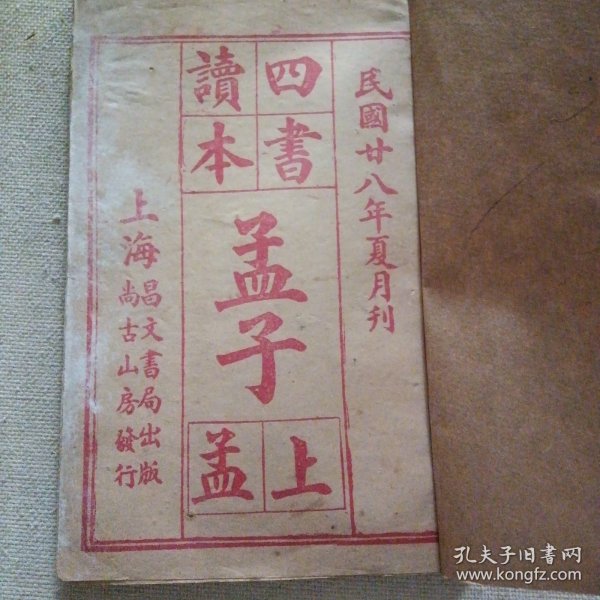 民國廿八年夏月刊
四書
讀本
孟子
上
孟
上海
昌文書局出版
尚古山房發行
孔夫子旧書网
www.kongfz.com